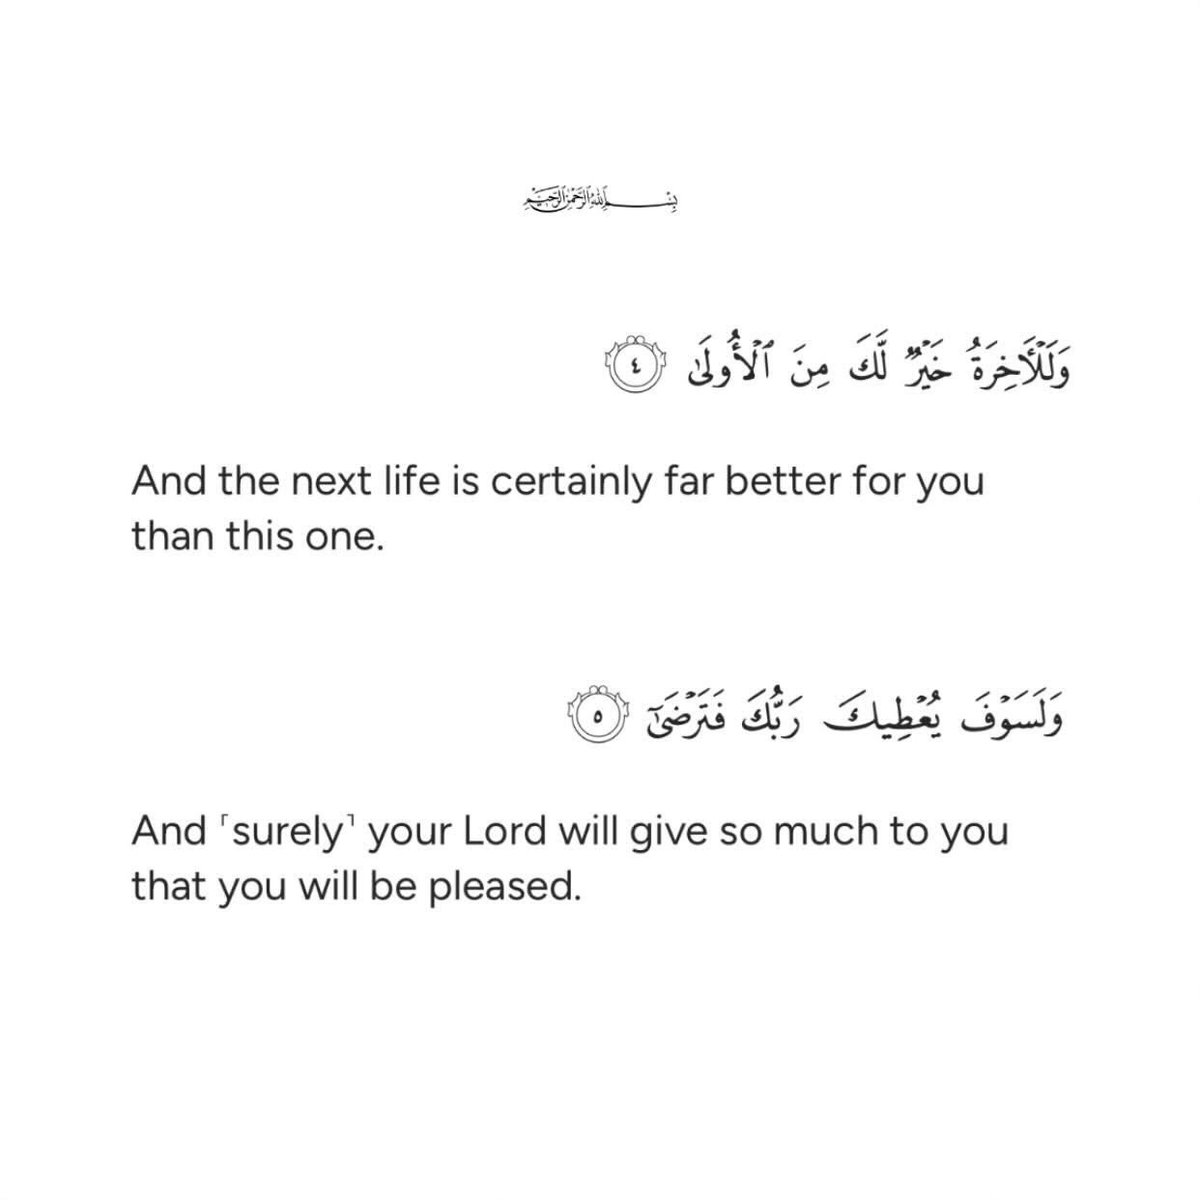 بِسْمِ ٱللَّهِ ٱلرَّحْمَٰنِ ٱلرَّحِيمِ
وَلَلْـَٔاخِرَةُ خَيْرٌ لَّكَ مِنَ ٱلْأُولَىٰ ٤
And the next life is certainly far better for you
than this one.
وَلَسَوْفَ يُعْطِيكَ رَبُّكَ فَتَرْضَىٰٓ ٥
And ˹surely˺ your Lord will give so much to you
that you will be pleased.